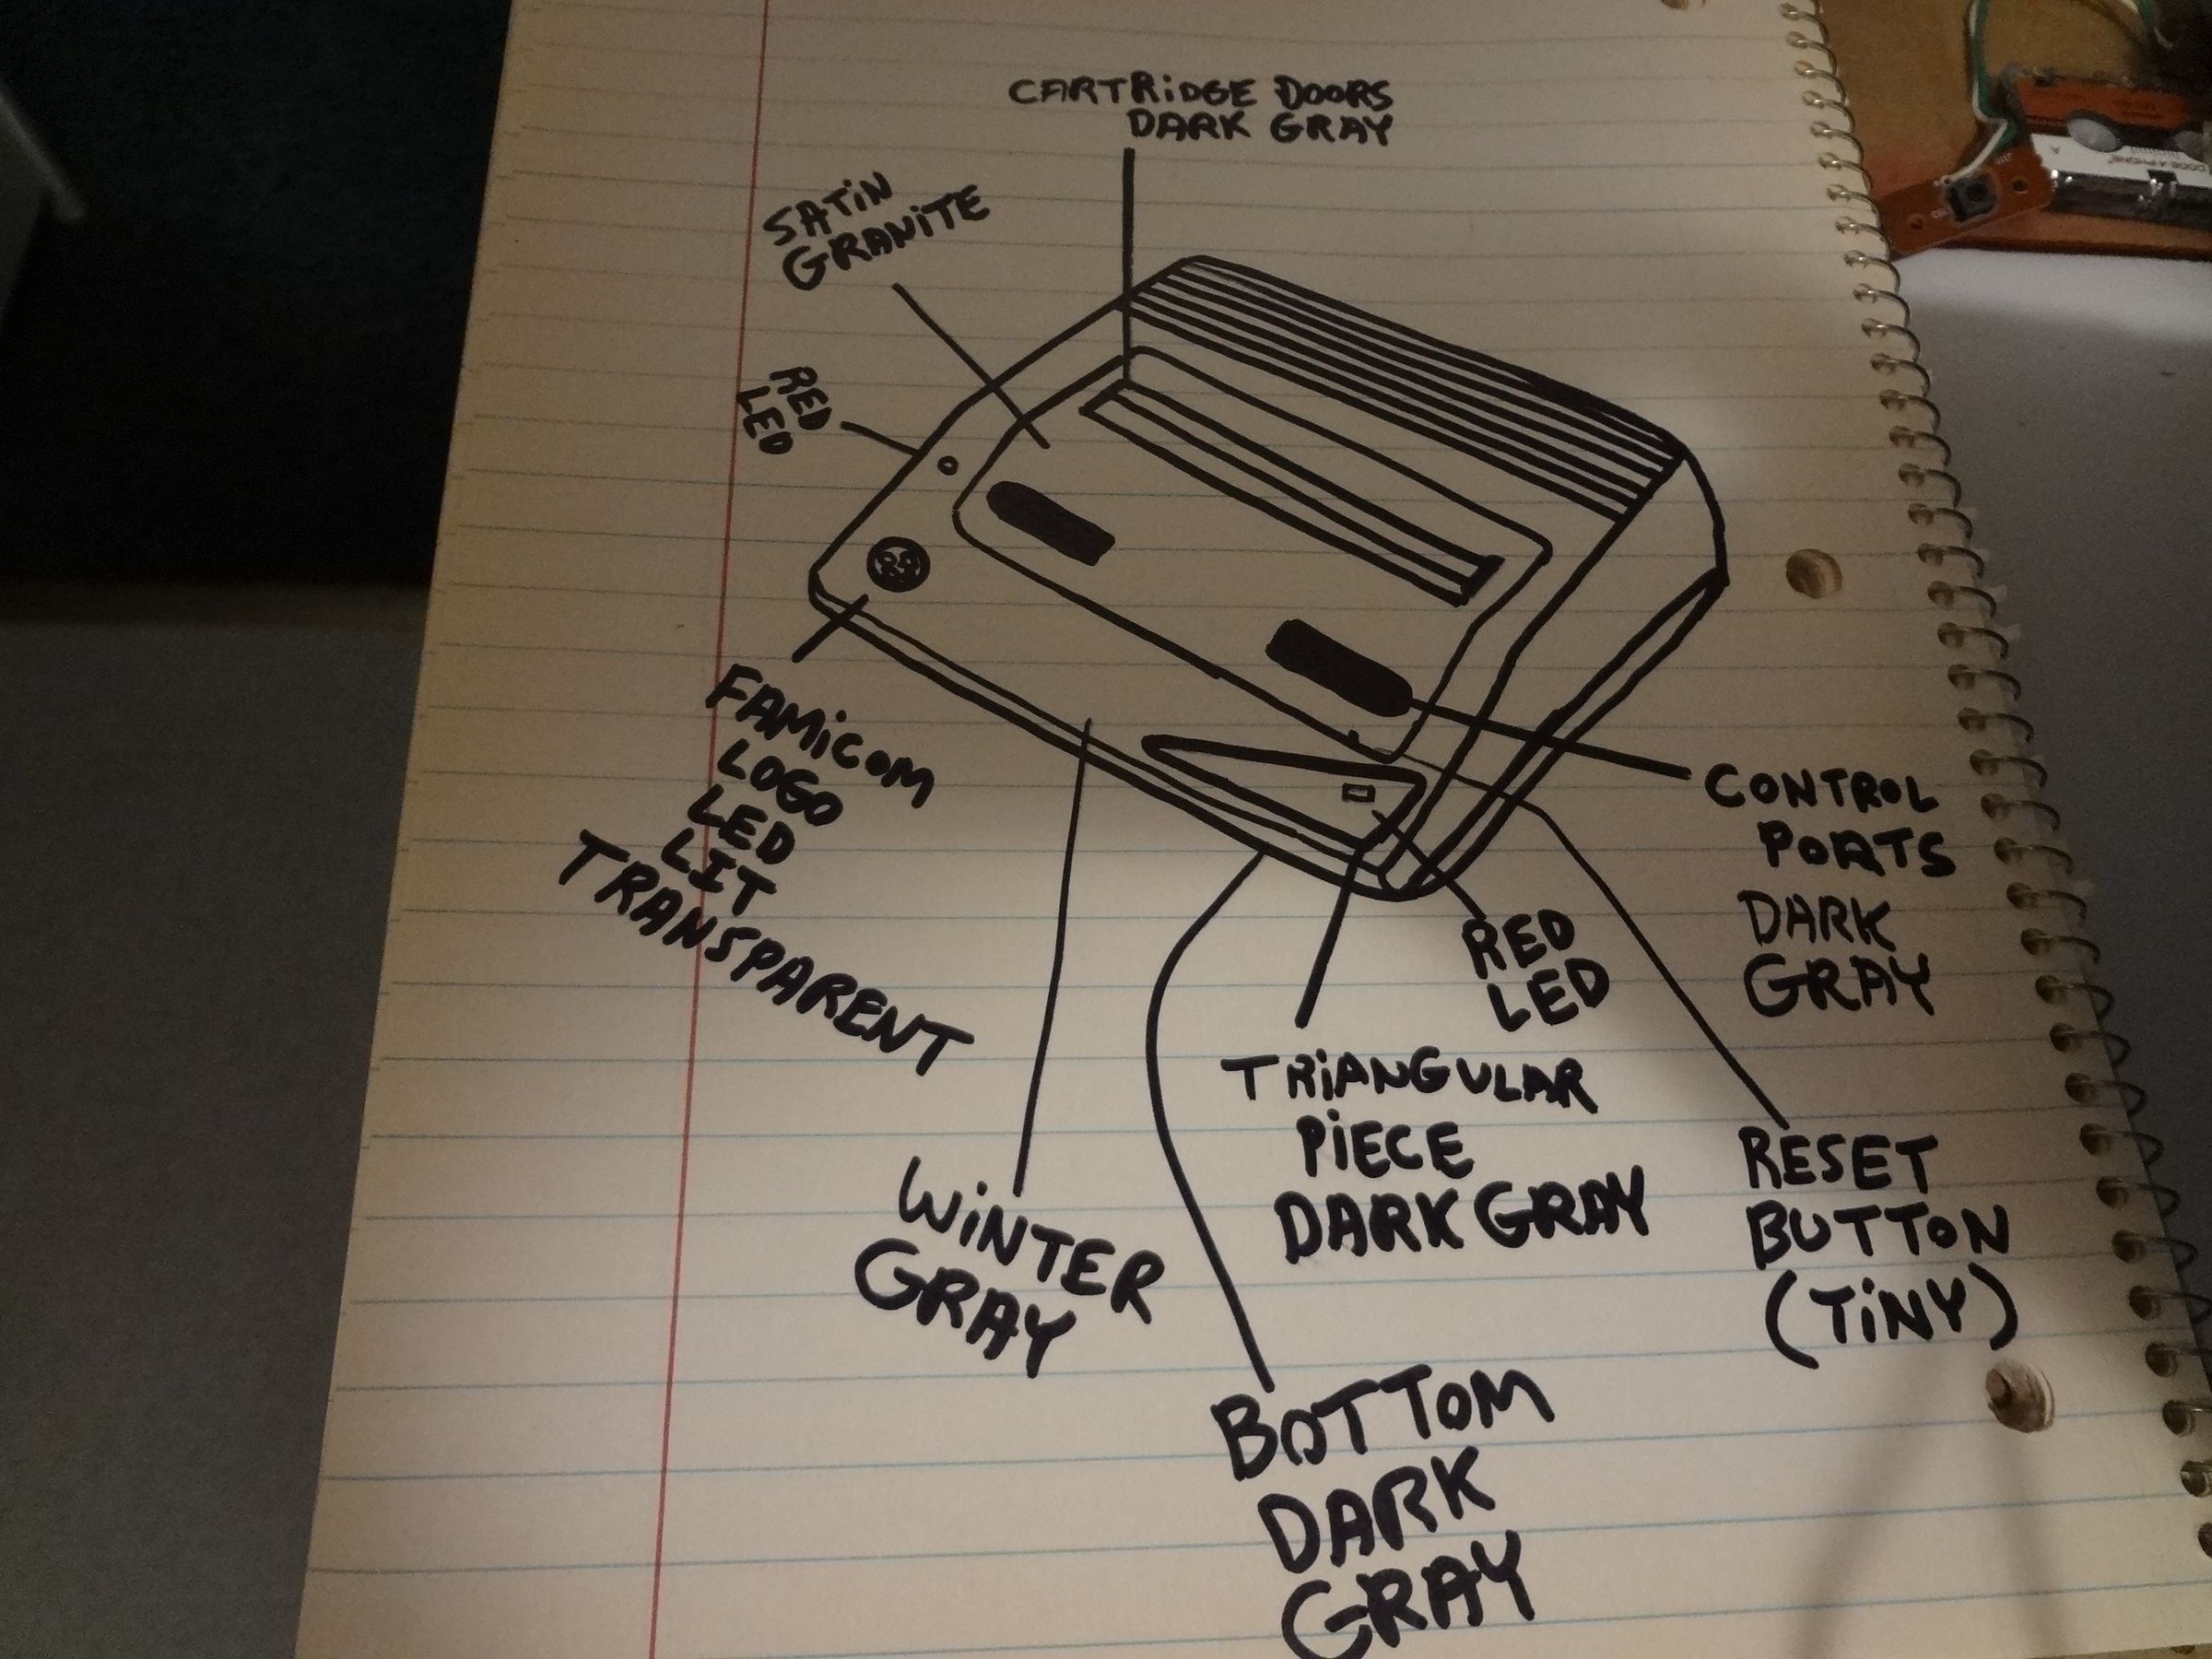 CARTRIDGE DOORS
DARK GRAY
SATIN
GRANITE
RED
LED
FAMICOM
LOGO
LED
LIT
TRANSPARENT
CONTROL
PORTS
DARK
GRAY
RED
LED
TRIANGULAR
PIECE
DARK GRAY
RESET
BUTTON
(TINY)
WINTER
GRAY
BOTTOM
DARK
GRAY